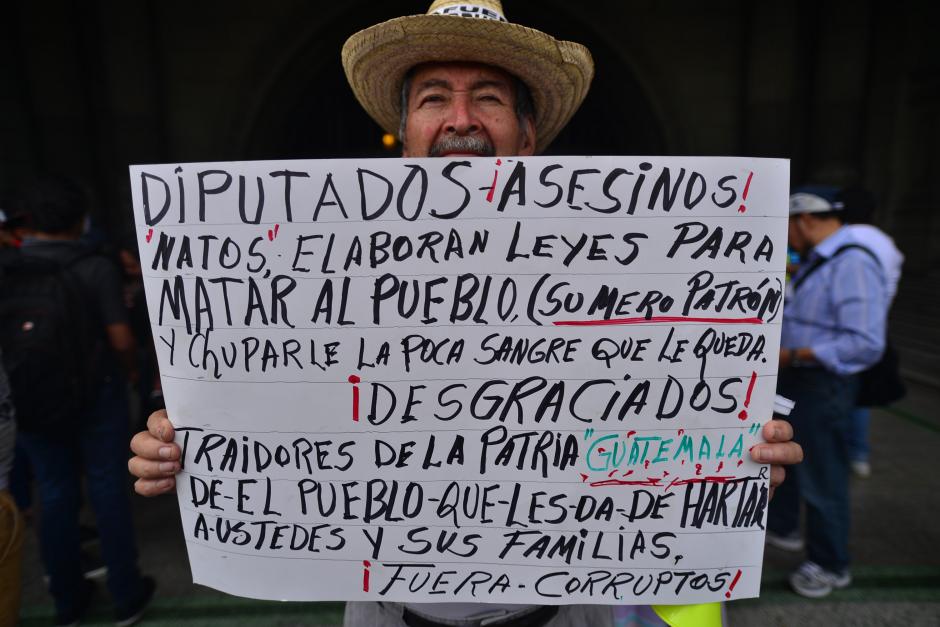 FUERA
DIPUTADOS-¡ASESINOS!
"NATOS," ELABORAN LEYES PARA
MATAR AL PUEBLO, (SU MERO PATRÓN)
Y CHUPARLE LA POCA SANGRE QUE LE QUEDA.
¡DESGRACIADOS!
TRAIDORES DE LA PATRIA "GUATEMALA"
DE-EL PUEBLO-QUE-LES-DA-DE HARTAR
A-USTEDES Y SUS FAMILIAS,
¡FUERA-CORRUPTOS!